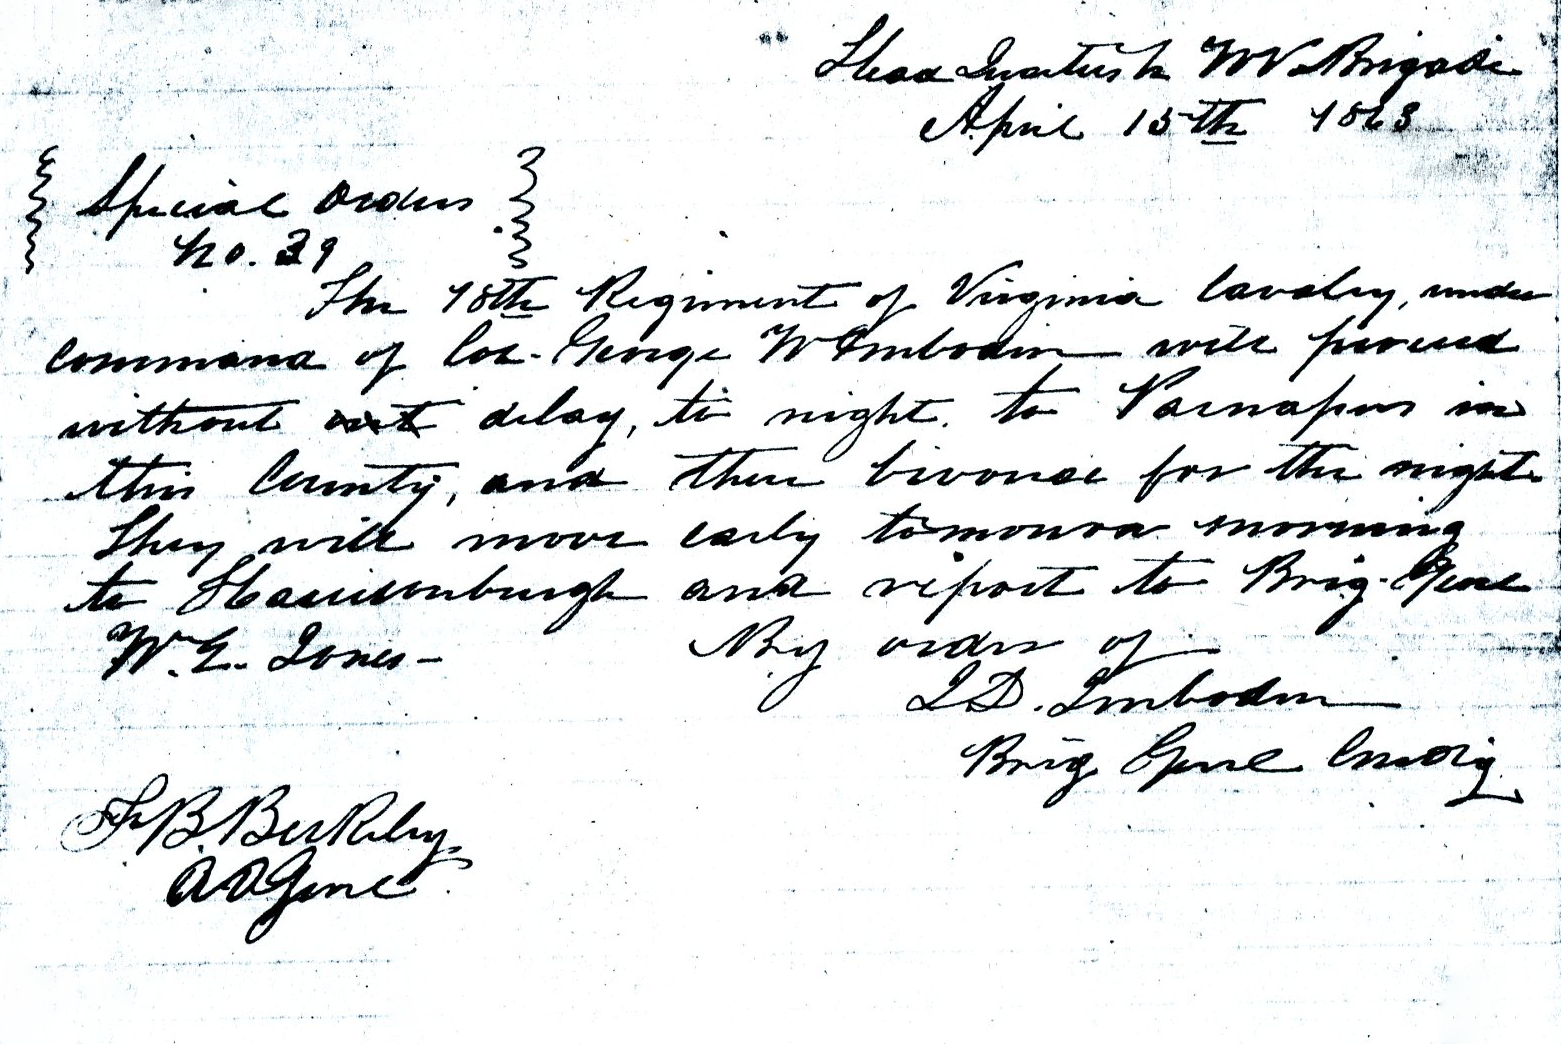 Head Quarters N W V Brigade
April 15th 1863
Special Orders
No. 39
The 18th Regiment of Virginia Cavalry, under
command of Col. George W Imboden will proceed
without delay, to night. to Parnapus in
this County, and there bivouac for the night.
They will move early tomorrow morning
to Harrisonburgh and report to Brig. Genl
Wm. E. Jones - By order of
J D. Imboden
Brig Genl Cmdig
F. B. Berkeley
A A Genl.